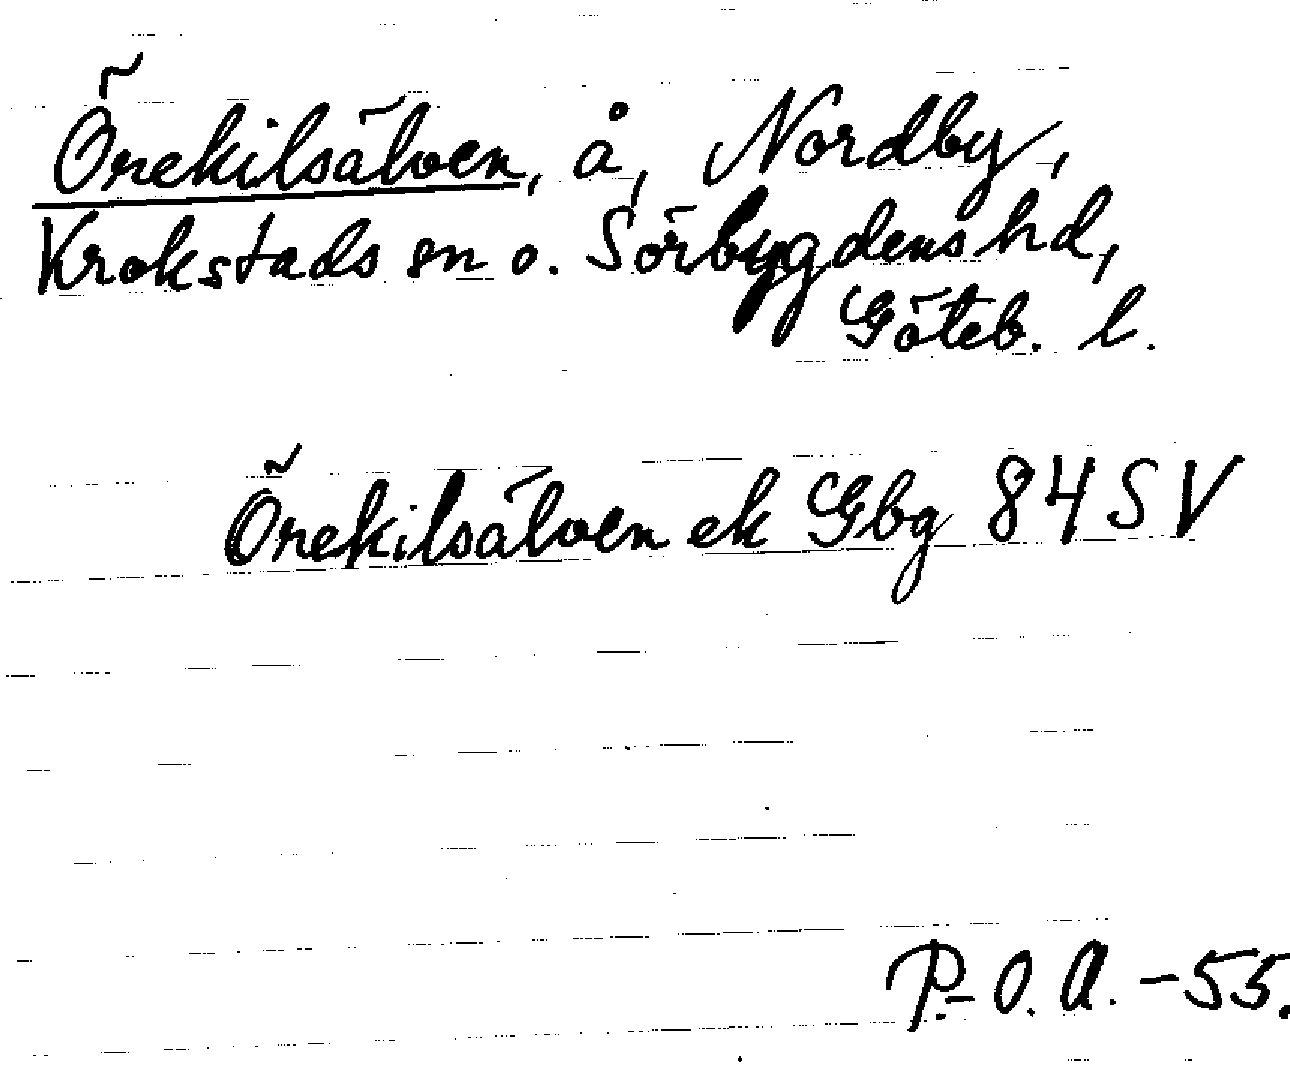 Örekilsälven, å, Nordby,
Krokstads sn o. Sörbygdens hd,
Göteb. l.
Örekilsälven ek Gbg 84 SV
P.-O. A. -55.